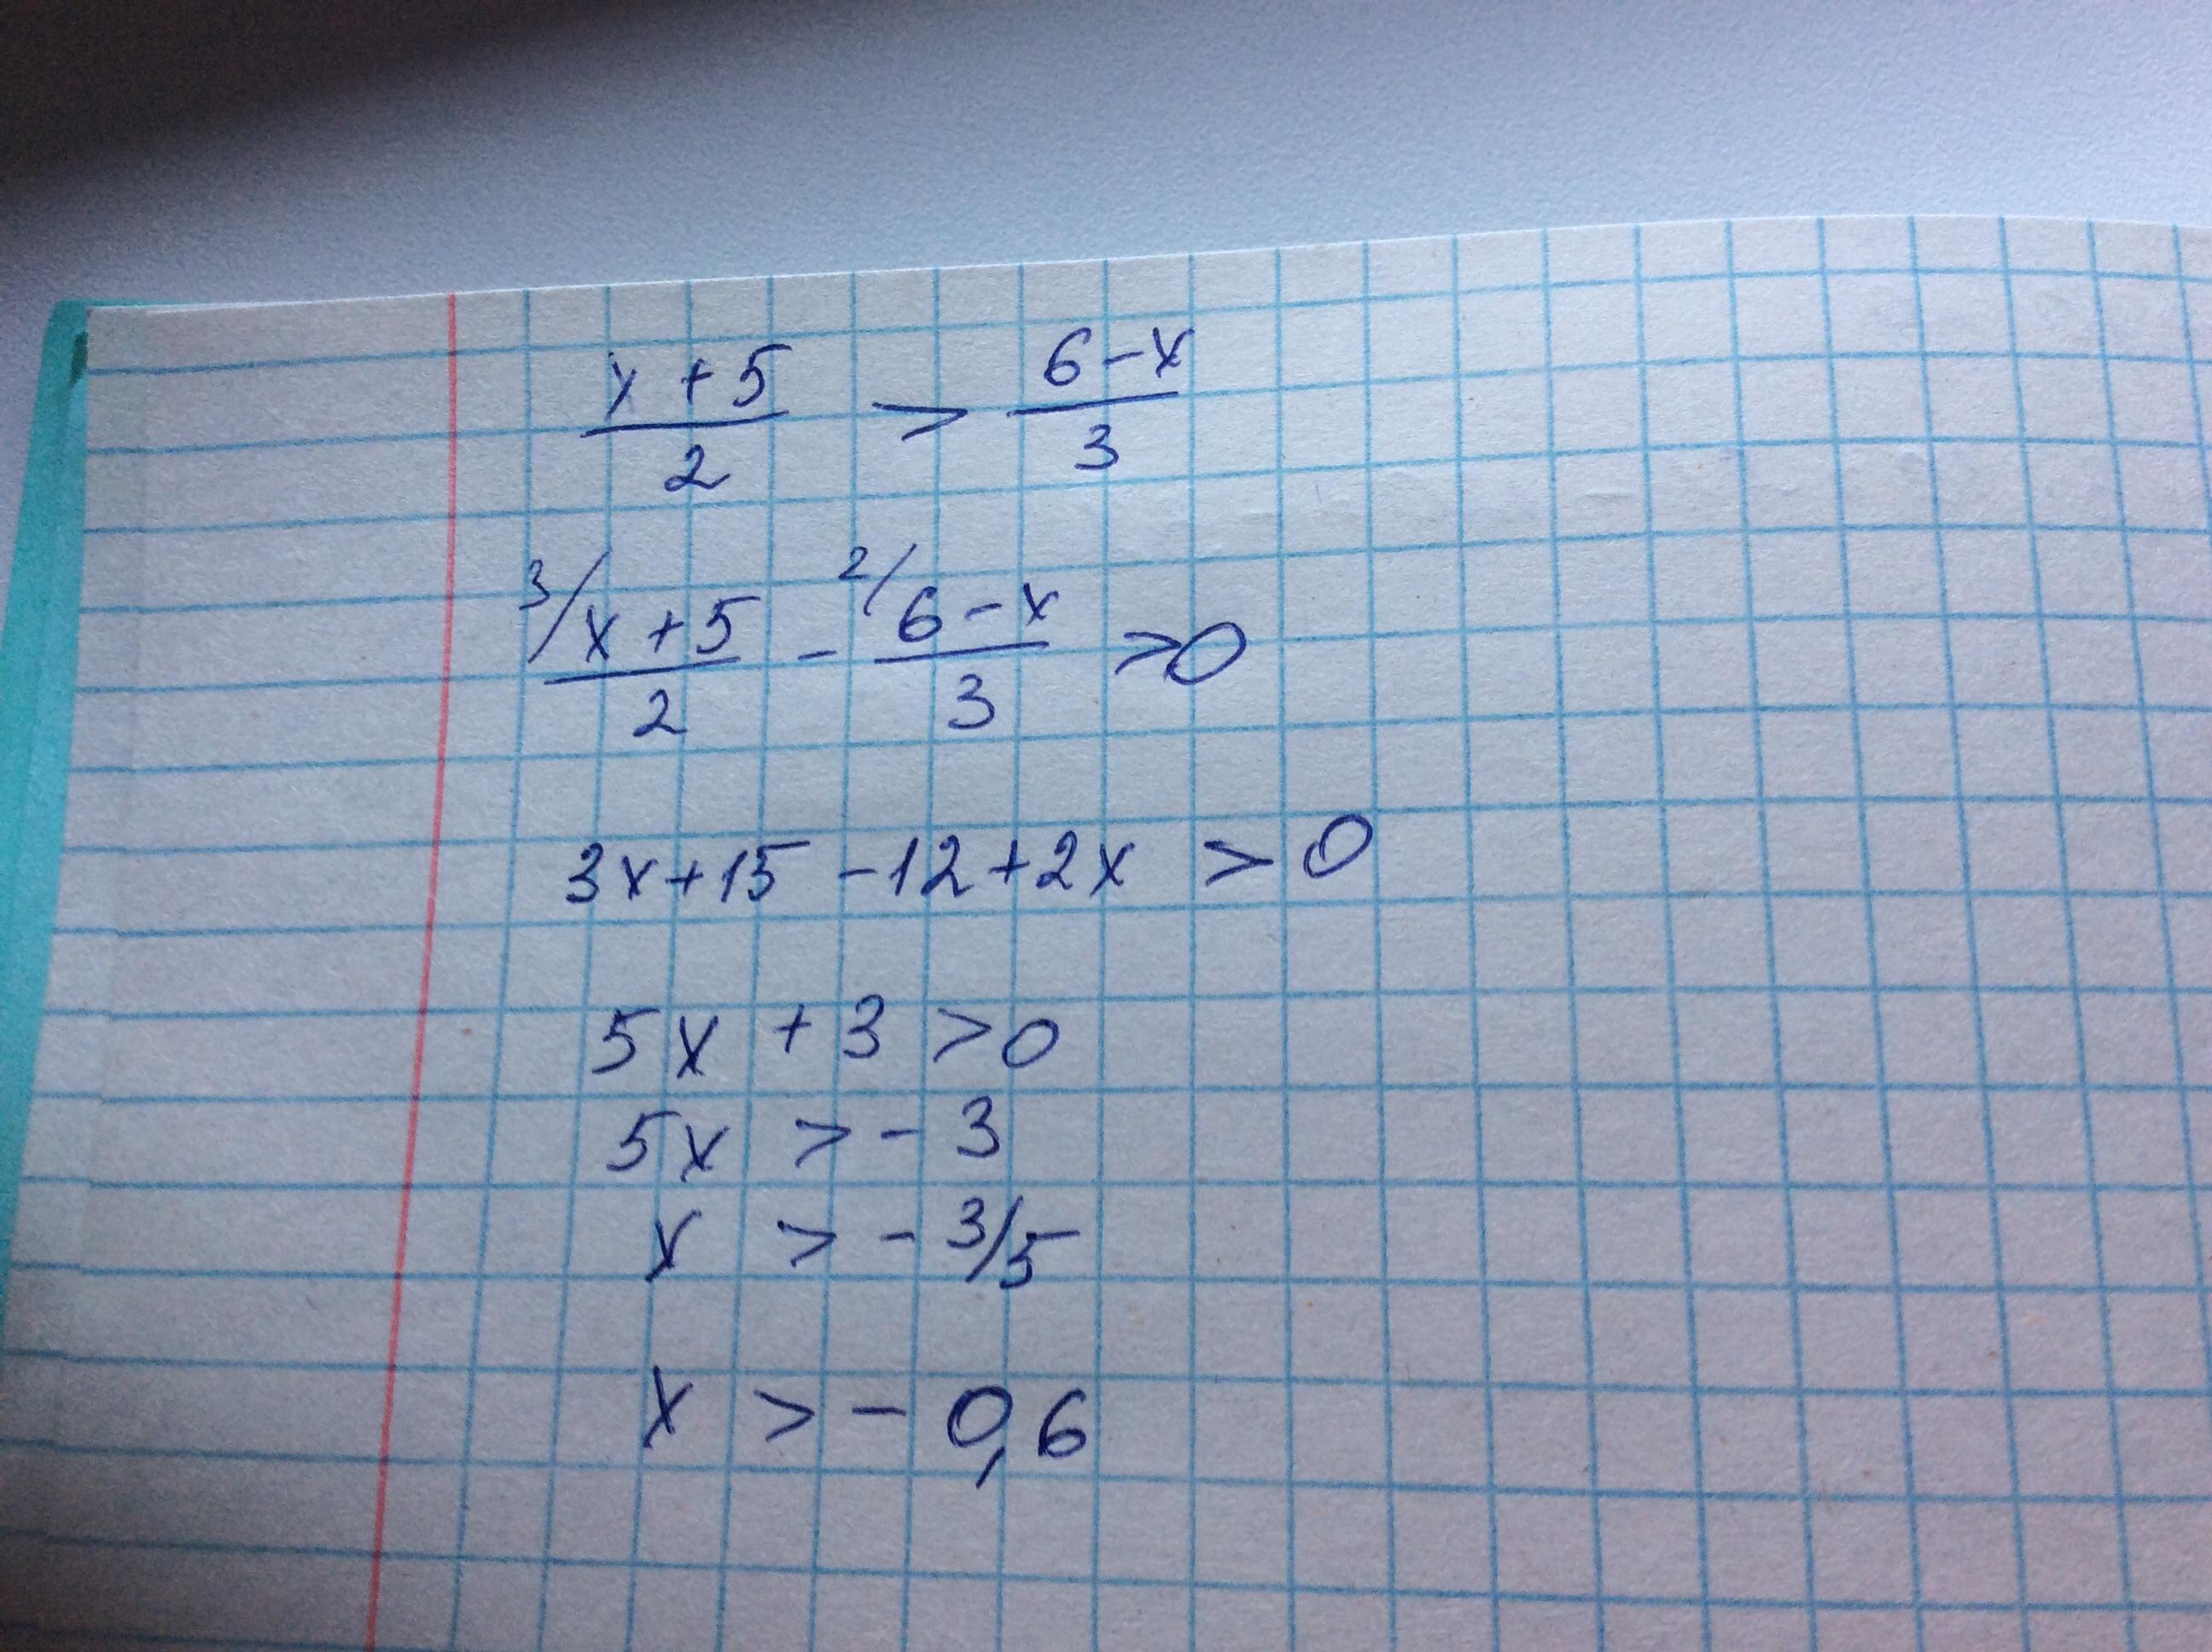 x+5/2 > 6-x/3
3/x+5/2 - 2/6-x/3 >0
3x+15-12+2x > 0
5x+3>0
5x>-3
x>-3/5
x>-0,6